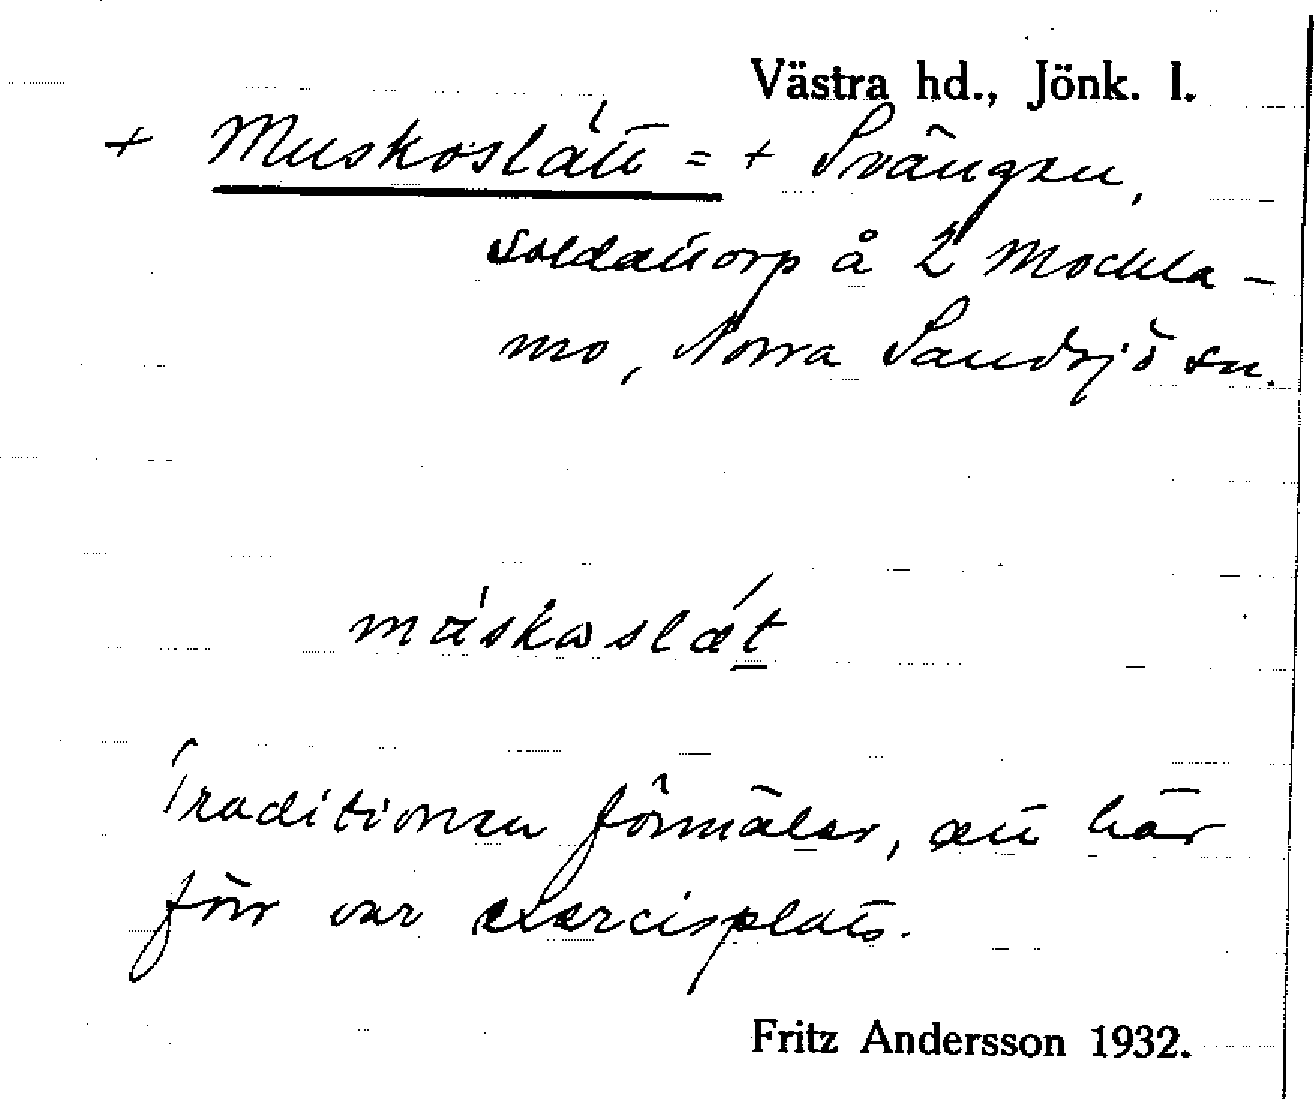 Västra hd., Jönk. l.
+ Muskoslätt = + Svängen,
soldattorp å 2 Mockla-
mo, Norra Sandsjö sn.
Traditionen förmäler, att här
förr var exercisplats.
Fritz Andersson 1932.